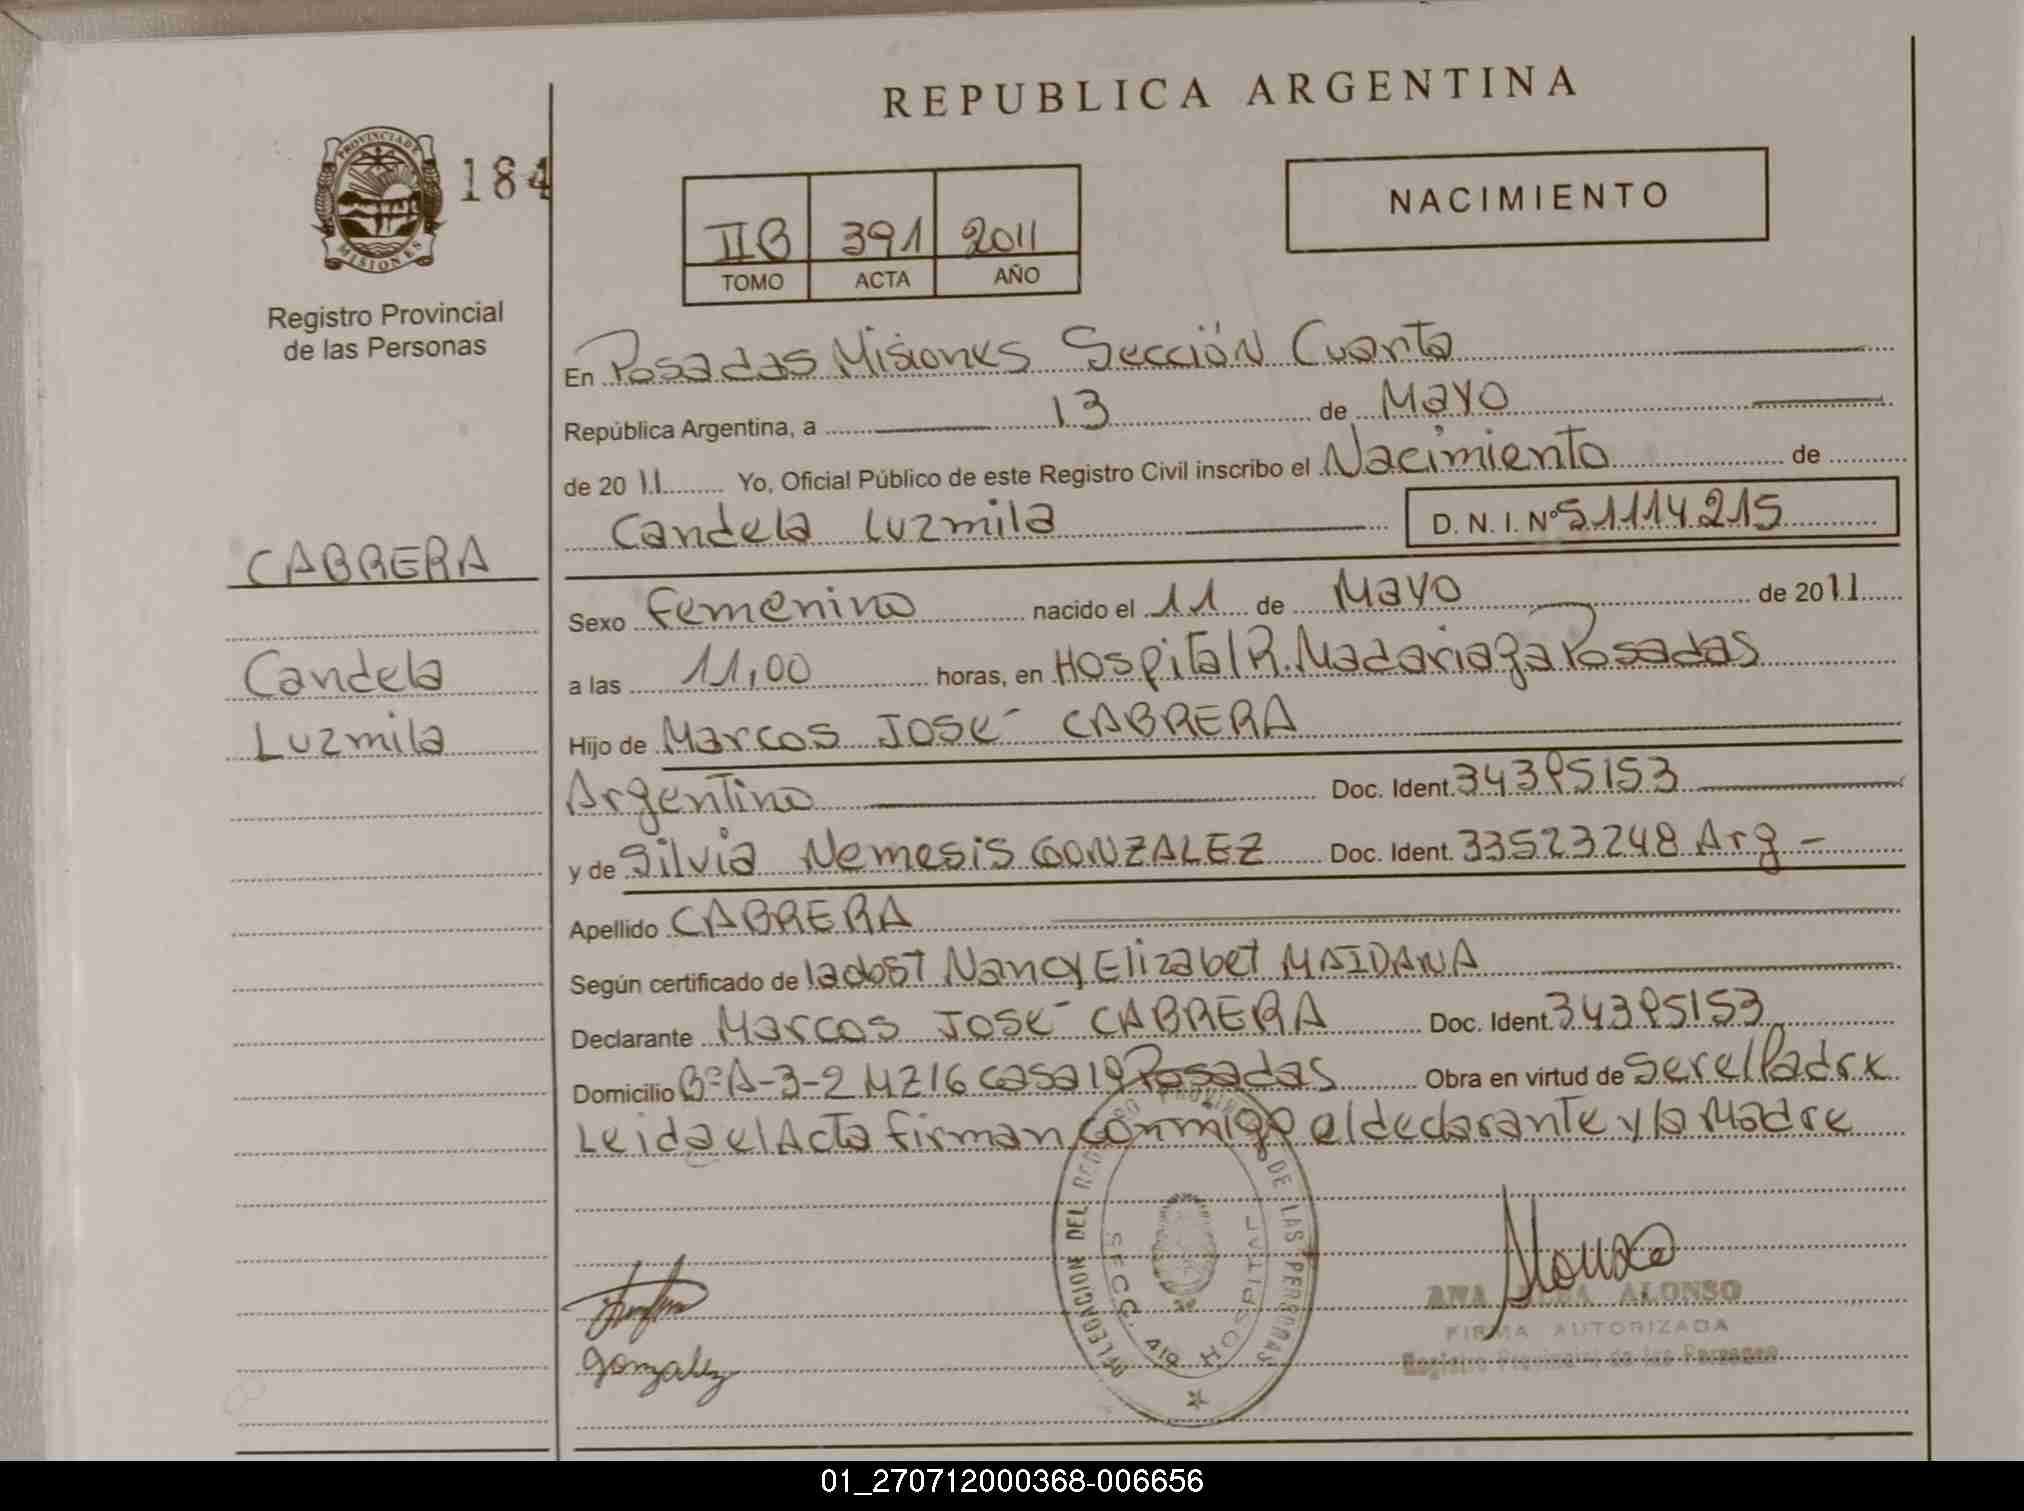 REPUBLICA ARGENTINA
PROVINCIA DE MISIONES
184
NACIMIENTO
IIB 391 2011
TOMO ACTA AÑO
Registro Provincial
de las Personas
En Posadas Misiones Sección Cuarta
República Argentina, a 13 de Mayo
de 2011 Yo, Oficial Público de este Registro Civil inscribo el Nacimiento de
Candela Luzmila D. N. I. Nº 51114215
CABRERA
Candela
Luzmila
Sexo Femenino nacido el 11 de Mayo de 2011
a las 11,00 horas, en Hospital R. Madariaga Posadas
Hijo de Marcos José CABRERA
Argentino Doc. Ident. 34395153
y de Silvia Nemesis GONZALEZ Doc. Ident. 33523248 Arg -
Apellido CABRERA
Según certificado de la obst Nancy Elizabet MAIDANA
Declarante Marcos José CABRERA Doc. Ident. 34395153
Domicilio Bº A-3-2 MZ 16 casa 19 Posadas Obra en virtud de ser el Padre
Leida el Acta firman conmigo el declarante y la Madre
DELEGACION DEL REGISTRO PROVINCIAL DE LAS PERSONAS
SECC. 4ta HOSPITAL
Gonzalez
Alonso
ANA ALONSO
FIRMA AUTORIZADA
Registro Provincial de las Personas
01_270712000368-006656